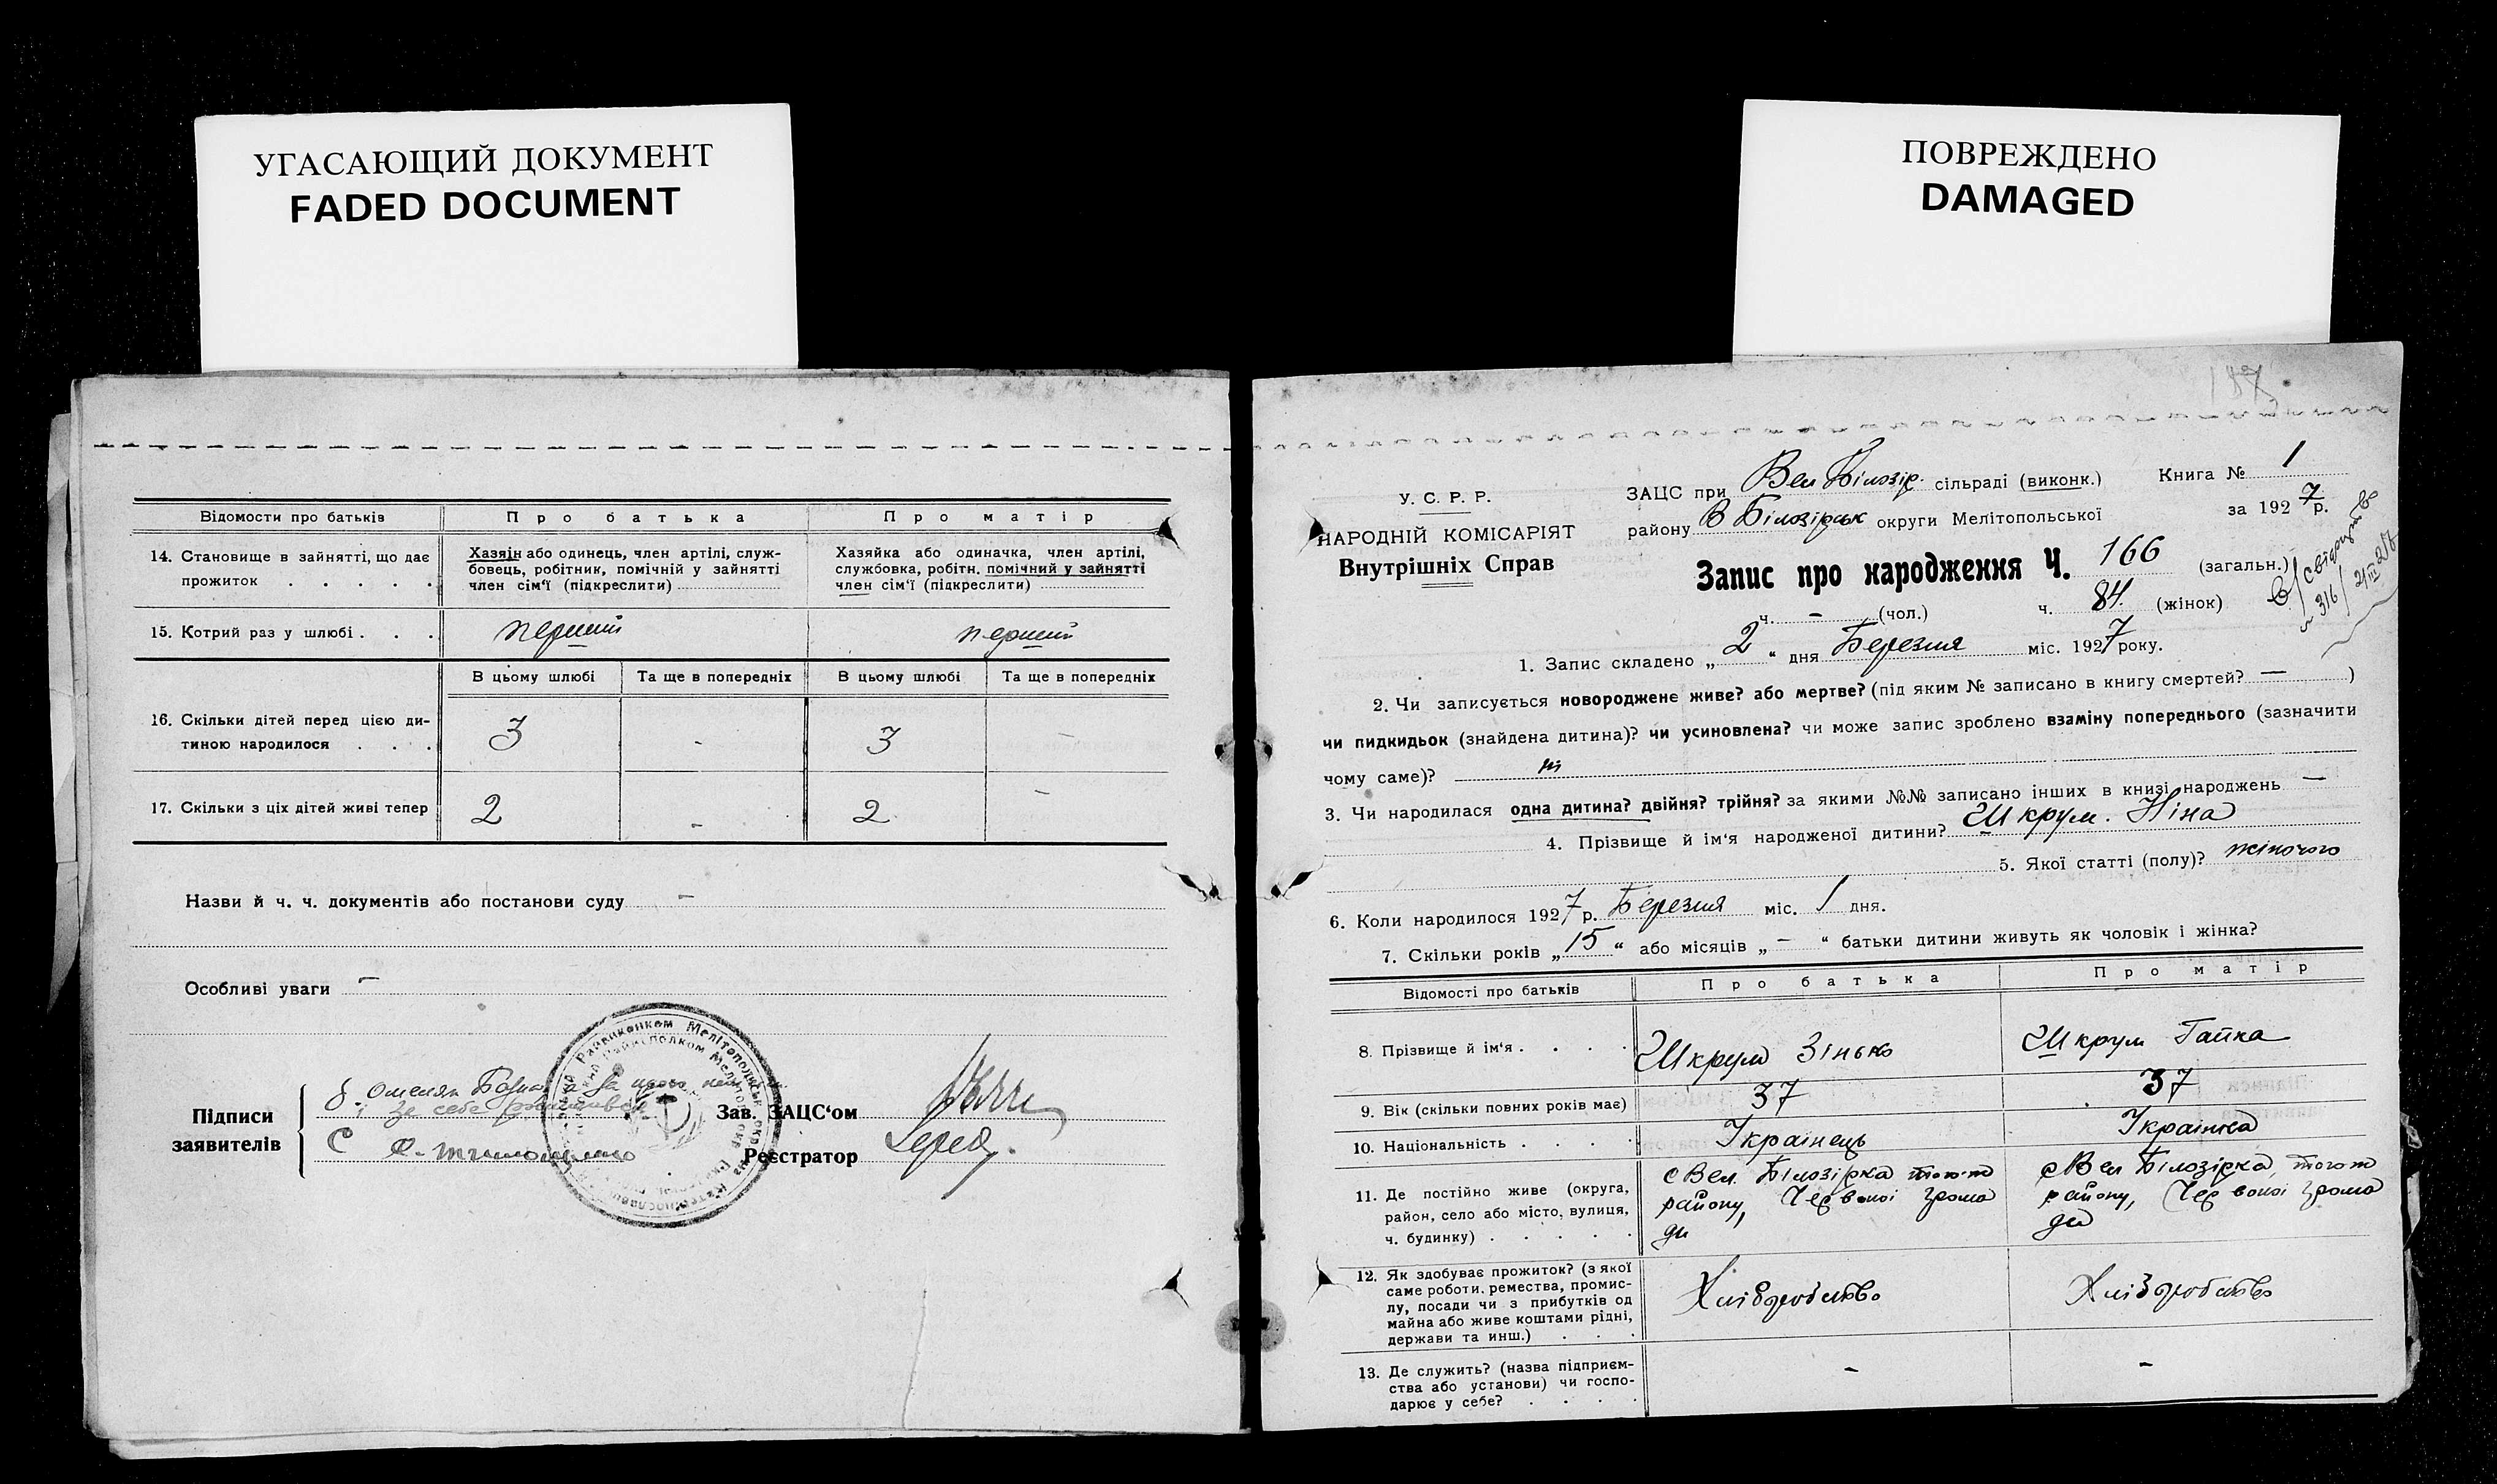 УГАСАЮЩИЙ ДОКУМЕНТ
FADED DOCUMENT
ПОВРЕЖДЕНО
DAMAGED
Відомости про батьків
Про батька
Про матір
14. Становище в зайнятті, що дає прожиток . . . .
Хазяін або одинець, член артілі, служ-
бовець, робітник, помічній у зайнятті
член сім'ї (підкреслити)
Хазяйка або одиначка, член артілі,
службовка, робітн. помічний у зайнятті
член сім'ї (підкреслити)
15. Котрий раз у шлюбі . . . перший перший
В цьому шлюбі Та ще в попередніх В цьому шлюбі Та ще в попередніх
16. Скільки дітей перед цією ди-
тиною народилося . . . 3 - 3 -
17. Скільки з ціх дітей живі тепер 2 - 2 -
Назви й ч. ч. документів або постанови суду —
Особливі уваги —
Підписи
заявителів
Омелян
за себе
Зав. ЗАЦС'ом
Реєстратор
187
У. С. Р. Р.
НАРОДНІЙ КОМІСАРІЯТ
Внутрішніх Справ
ЗАЦС при Вел Білозір. сільраді (виконк.) Книга № 1
району В Білозірськ округи Мелітопольської за 1927 р.
Запис про народження Ч. 166 (загальн.)
ч. - (чол.) ч. 84. (жінок)
316
1. Запис складено „2“ дня Березня міс. 1927 року.
2. Чи записується новороджене живе? або мертве? (під яким № записано в книгу смертей? — )
чи пидкидьок (знайдена дитина)? чи усиновлена? чи може запис зроблено взаміну попереднього (зазначити
чому саме)? ні
3. Чи народилася одна дитина? двійня? трійня? за якими №№ записано інших в книзі народжень —
4. Прізвище й ім'я народженої дитини? Шкрум. Ніна
5. Якої статті (полу)? жіночого
6. Коли народилося 1927 р. Березня міс. 1 дня.
7. Скільки років „15“ або місяців „-“ батьки дитини живуть як чоловік і жінка?
Відомості про батьків
Про батька
Про матір
8. Прізвище й ім'я . . . . Шкрум Зінько Шкрум Гапка
9. Вік (скільки повних років має) 37 37
10. Національність . . . . Українець Українка
11. Де постійно живе (округа,
район, село або місто, вулиця,
ч. будинку) . . . . .
с Вел. Білозірка того-ж
району, Червоної Грома
ди
с Вел Білозірка, того ж
району, Червоної Грома
ди
12. Як здобуває прожиток? (з якої
саме роботи. ремества, промис-
лу, посади чи з прибутків од
майна або живе коштами рідні,
держави та инш.) . . .
Хліборобство
Хліборобство
13. Де служить? (назва підприєм-
ства або установи) чи госпо-
дарює у себе? . . . . - -